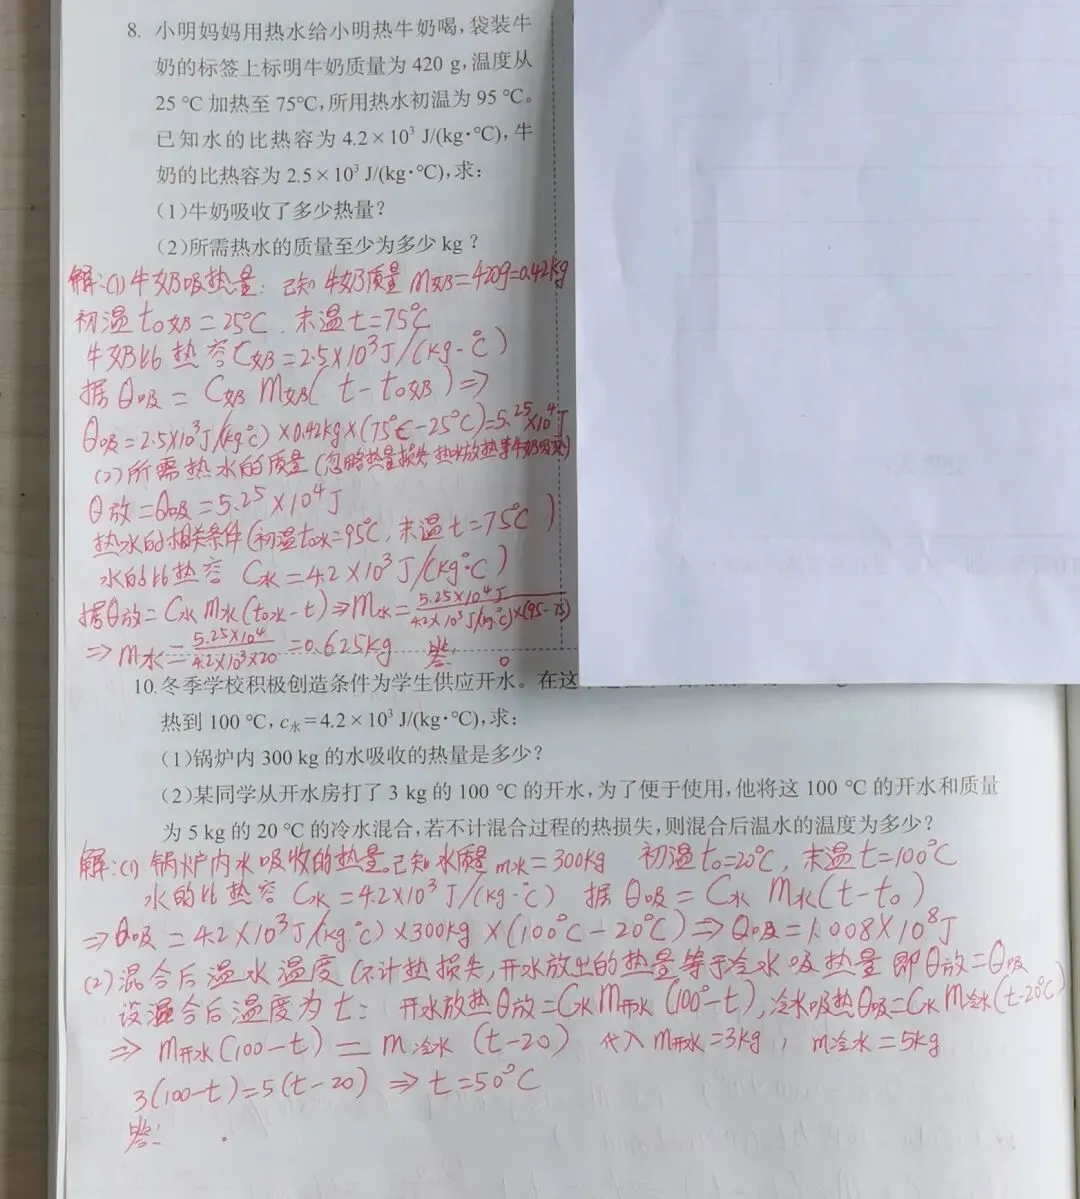 8. 小明妈妈用热水给小明热牛奶喝，袋装牛
奶的标签上标明牛奶质量为 420 g，温度从
25 ℃加热至 75℃，所用热水初温为 95 ℃。
已知水的比热容为 4.2×10³ J/(kg·℃)，牛
奶的比热容为 2.5×10³ J/(kg·℃)，求：
(1)牛奶吸收了多少热量？
(2)所需热水的质量至少为多少 kg？
解:(1)牛奶吸热量: 已知 牛奶质量 m奶=420g=0.42kg
初温 t₀奶=25℃ . 末温 t=75℃
牛奶比热容C奶=2.5×10³J/(kg·℃)
据 Q吸 = C奶 m奶( t - t₀奶 ) ⇒
Q吸=2.5×10³J/(kg℃)×0.42kg×(75℃-25℃)=5.25×10⁴J
(2)所需热水的质量(忽略热量损失,热水放热等牛奶吸热)
Q放=Q吸=5.25×10⁴J
热水的相关条件(初温t₀水=95℃, 末温t=75℃)
水的比热容 C水=4.2×10³J/(kg·℃)
据Q放=C水m水(t₀水-t)⇒m水=5.25×10⁴J/4.2×10³J/(kg·℃)×(95-75)
⇒m水=5.25×10⁴/4.2×10³×20=0.625kg 答:
10.冬季学校积极创造条件为学生供应开水。在这
热到 100 ℃，c水=4.2×10³ J/(kg·℃)，求：
(1)锅炉内 300 kg 的水吸收的热量是多少？
(2)某同学从开水房打了 3 kg 的 100 ℃的开水，为了便于使用，他将这 100 ℃的开水和质量
为 5 kg 的 20 ℃的冷水混合，若不计混合过程的热损失，则混合后温水的温度为多少？
解:(1) 锅炉内水吸收的热量。已知水质量 m水=300kg 初温t₀=20℃, 末温t=100℃
水的比热容 C水=4.2×10³J/(kg·℃) 据 Q吸=C水 m水(t-t₀)
⇒Q吸=4.2×10³J/(kg·℃)×300kg×(100℃-20℃)⇒Q吸=1.008×10⁸J
(2)混合后温水温度(不计热损失,开水放出的热量等于冷水吸热量即Q放=Q吸
设混合后温度为t: 开水放热Q放=C水m开水(100°-t),冷水吸热Q吸=C水m冷水(t-20℃)
⇒ m开水(100-t)=m冷水(t-20) 代入m开水=3kg, m冷水=5kg
3(100-t)=5(t-20) ⇒ t=50℃
答: